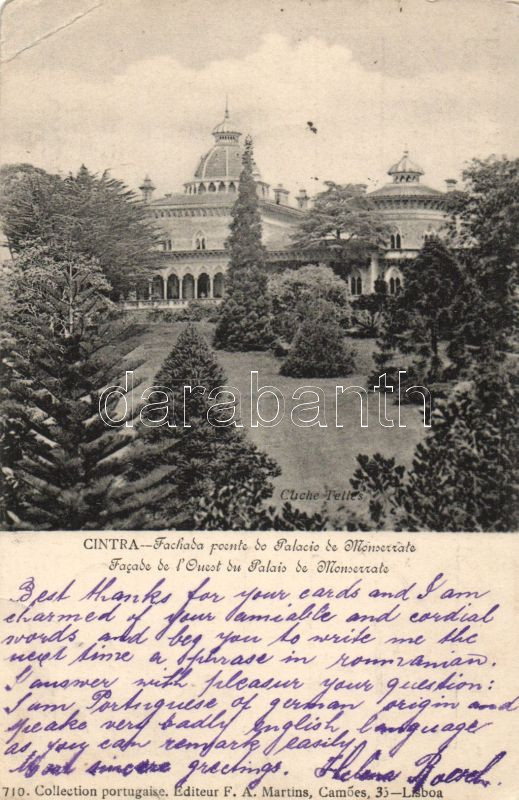 darabanth
Cliche Telles
CINTRA—Fachada poente do Palacio de Monserrate
Façade de l'Ouest du Palais de Monserrate
Best thanks for your cards and I am
charmed of your amiable and cordial
words and beg you to write me the
next time a phrase in roumanian.
I answer with pleasur your question:
I am Portuguese of german origin and
speake very badly english language
as you can remark easily.
Most sincere greetings. Helena
710. Collection portugaise. Éditeur F. A. Martins, Camões, 35—Lisboa